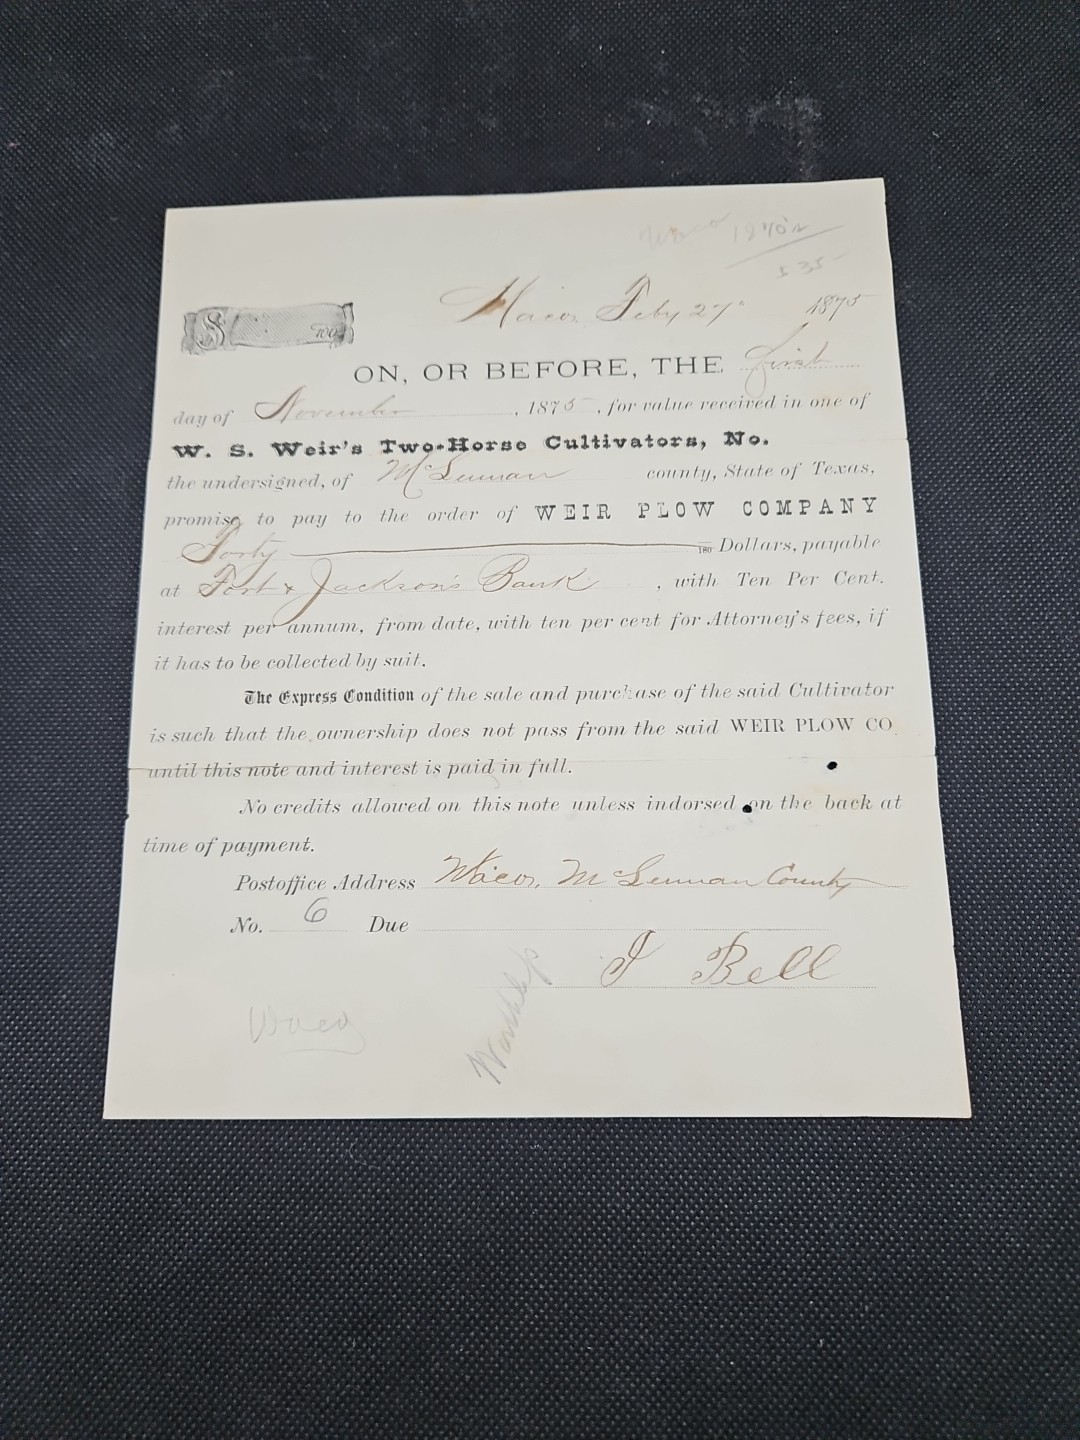 Waco
Waco, Feby 27" 1875
$ 100
ON, OR BEFORE, THE first
day of November , 1875 , for value received in one of
W. S. Weir's Two-Horse Cultivators, No.
the undersigned, of McLennan county, State of Texas,
promise to pay to the order of WEIR PLOW COMPANY
Forty 100 Dollars, payable
at Fort & Jackson's Bank , with Ten Per Cent.
interest per annum, from date, with ten per cent for Attorney's fees, if
it has to be collected by suit.
The Express Condition of the sale and purchase of the said Cultivator
is such that the ownership does not pass from the said WEIR PLOW CO
until this note and interest is paid in full.
No credits allowed on this note unless indorsed on the back at
time of payment.
Postoffice Address Waco, McLennan County
No. 6 Due
J Bell
Waco